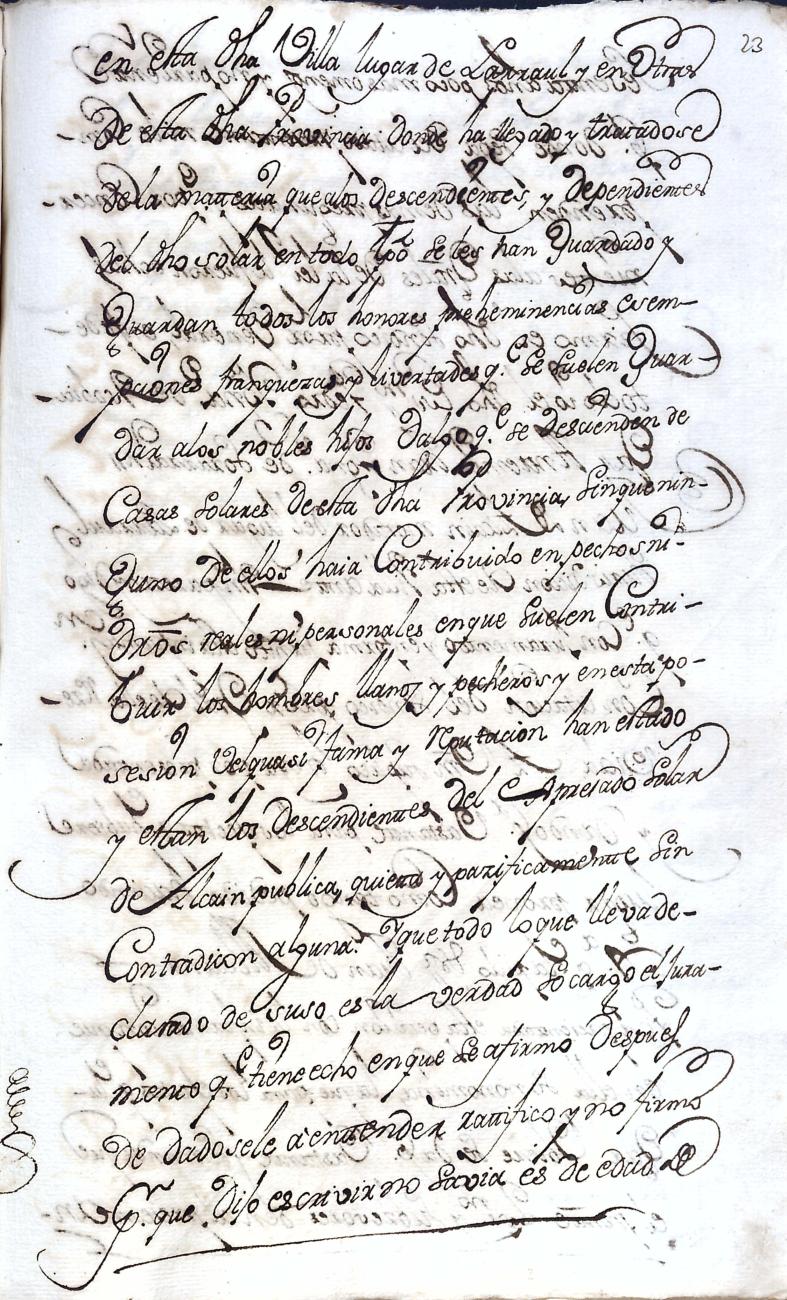 23
en esta dha Villa lugar de Larraul y en otras
de esta dha Provincia donde ha llegado y tratadose
de la matteria que alos descendientes, y dependientes
del dho solar en todo tpõ se les han Guardado y
Guardan todos los honores preheminencias esem-
pciones franquezas y livertades q.e se suelen Guar-
dar alos nobles hijos Dalgo q.e se descienden de
Casas solares de esta dha Provincia, sin que nin-
Guno de ellos haia Contribuido en pechos ni-
Drõs reales ni personales en que suelen Contri-
buir los hombres llanos y pecheros y en esta po-
sesion velquasi fama y reputacion han estado
y estan los descendientes del Apresado Solar
de Alcain publica, quieta y pazificamente sin
Contradicon alguna. Y que todo lo que lleva de-
clarado de suso es la verdad socargo el Jura-
mento q.e tiene echo en que se afirmo Despues
de dadosele a entender rattifico y no firmo
p.r que Dijo escrivir no savia es de edad de